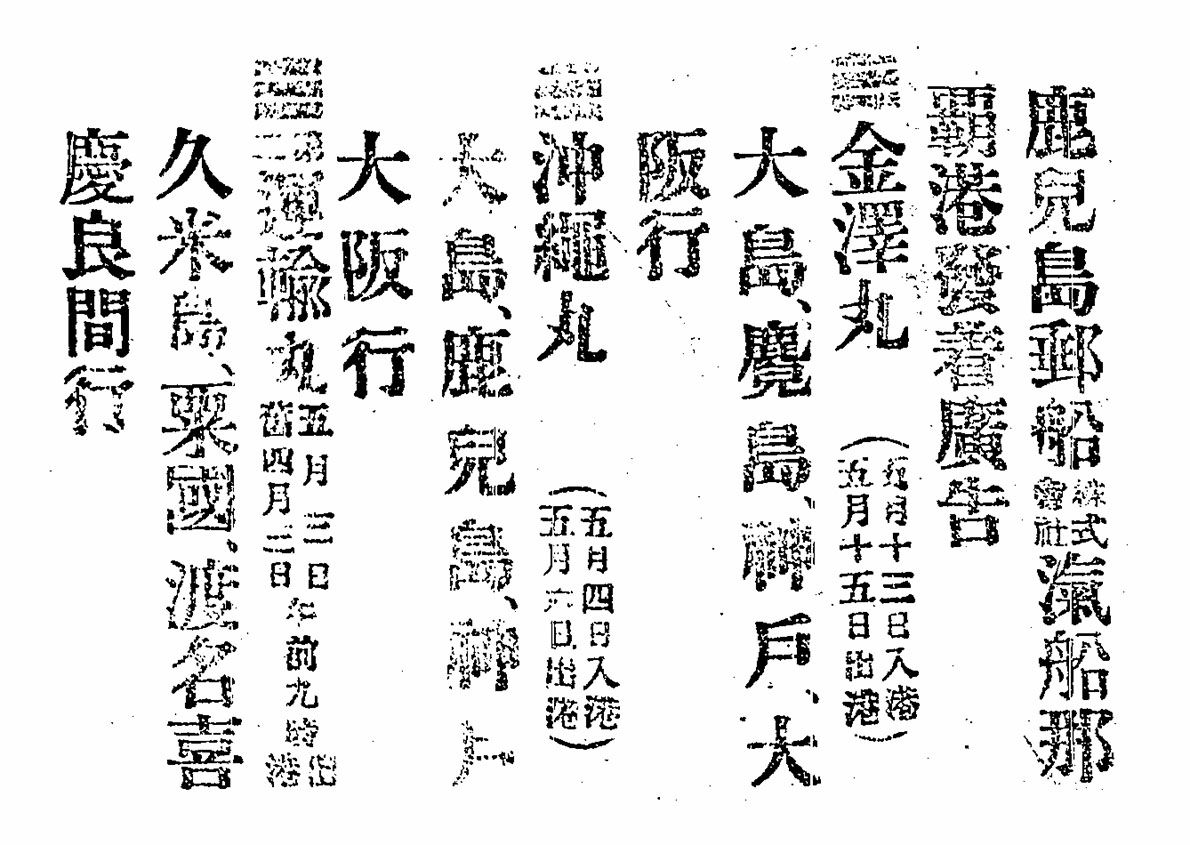 鹿兒島郵船株式會社滊船那
覇港發着廣告
金澤丸(五月十三日入港五月十五日出港)
大島、鹿兒島、神戶、大
阪行
沖繩丸(五月四日入港五月六日出港)
大島、鹿兒島、神戶
大阪行
第二運輸丸五月三日舊四月三日午前九時出港
久米島、粟國、渡名喜
慶良間行